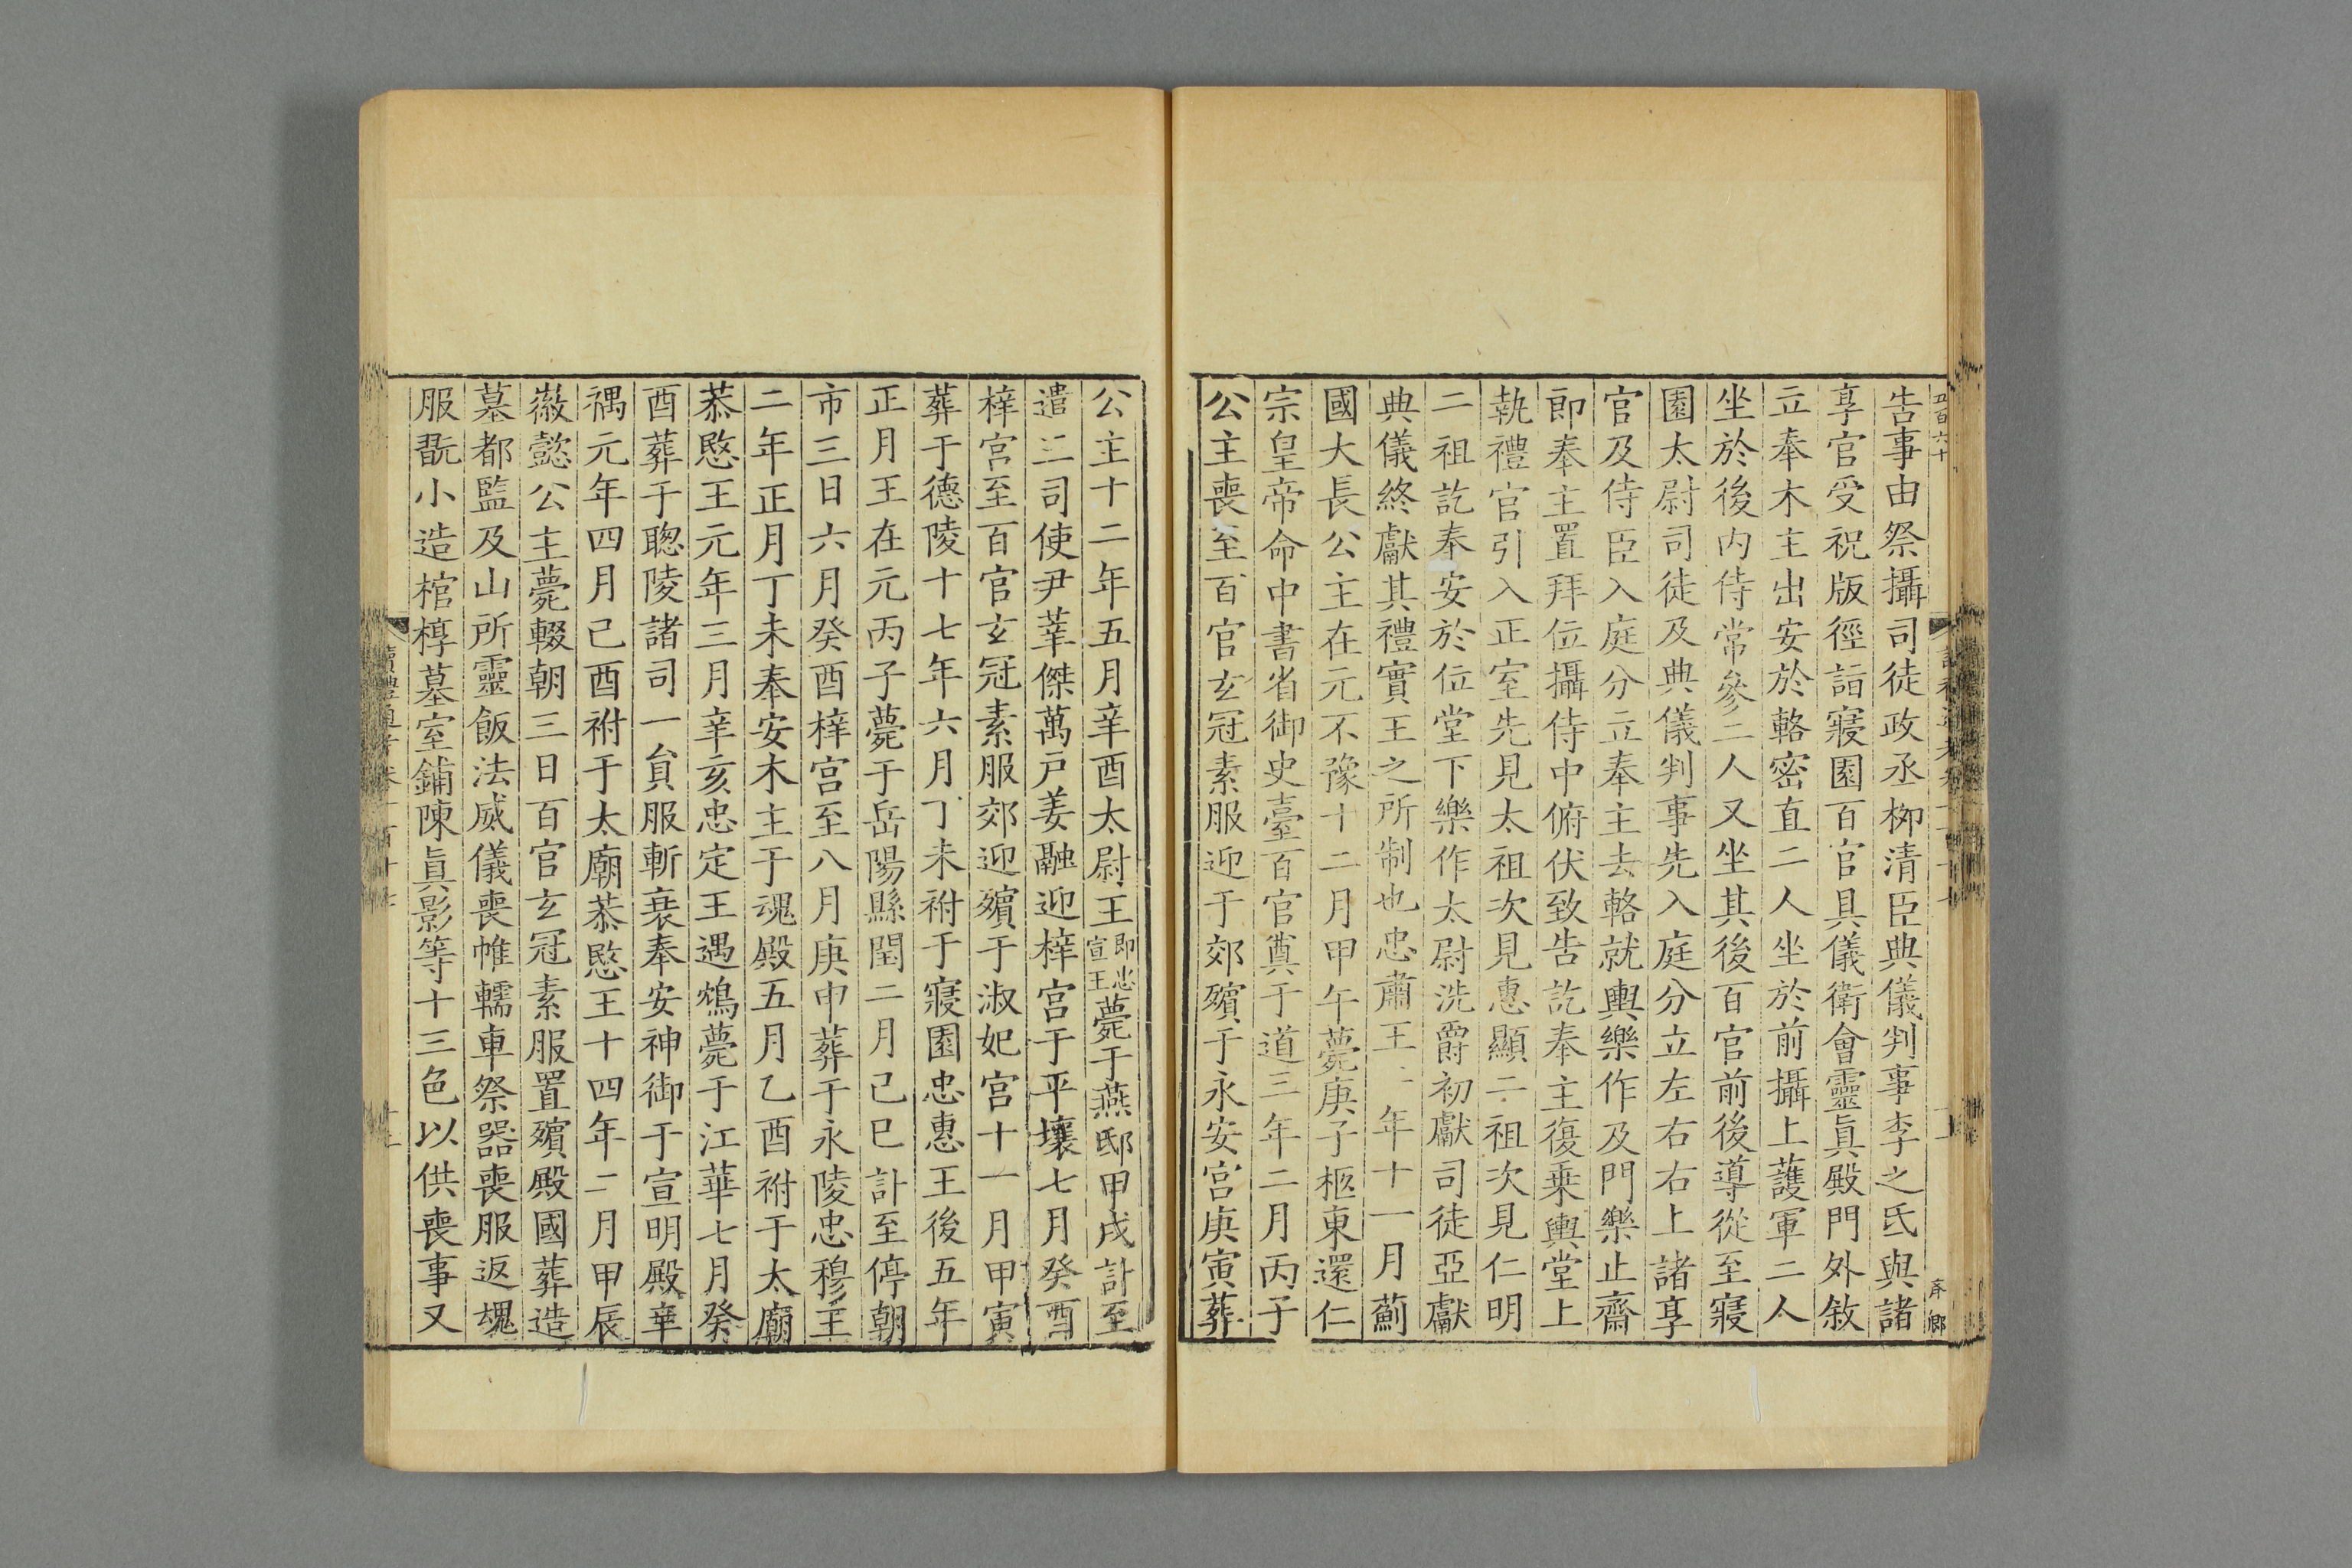 告事由祭攝司徒政丞柳清臣典儀判事李之氐與諸
享官受祝版徑詣寢園百官具儀衛會靈眞殿門外敘
立奉木主出安於輅密直二人坐於前攝上護軍二人
坐於後內侍常參二人又坐其後百官前後導從至寢
園太尉司徒及典儀判事先入庭分立左右右上諸享
官及侍臣入庭分立奉主去輅就輿樂作及門樂止齋
郎奉主置拜位攝侍中俯伏致告訖奉主復乗輿堂上
執禮官引入正室先見太祖次見惠顯二祖次見仁明
二祖訖奉安於位堂下樂作太尉洗爵初獻司徒亞獻
典儀終獻其禮實王之所制也忠肅王二年十一月薊
國大長公主在元不豫十二月甲午薨庚子柩東還仁
宗皇帝命中書省御史臺百官奠于道三年二月丙子
公主喪至百官玄冠素服迎于郊殯于永安宮庚寅葬
公主十二年五月辛酉太尉王即忠宣王薨于燕邸甲戌訃至
遣二司使尹莘傑萬戸姜融迎梓宮于平壤七月癸酉
梓宮至百官玄冠素服郊迎殯于淑妃宮十一月甲寅
葬于德陵十七年六月丁未祔于寢園忠惠王後五年
正月王在元丙子薨于岳陽縣閏二月己巳訃至停朝
市三日六月癸酉梓宮至八月庚申葬于永陵忠穆主
二年正月丁未奉安木主于魂殿五月乙酉祔于太廟
恭愍王元年三月辛亥忠定王遇鴆薨于江華七月癸
酉葬于聰陵諸司一員服斬衰奉安神御于宣明殿辛
禑元年四月己酉祔于太廟恭愍王十四年二月甲辰
徽懿公主薨輟朝三日百官玄冠素服置殯殿國葬造
墓都監及山所靈飯法威儀喪帷轜車祭器喪服返魂
服翫小造棺槨墓室鋪陳眞影等十三色以供喪事又